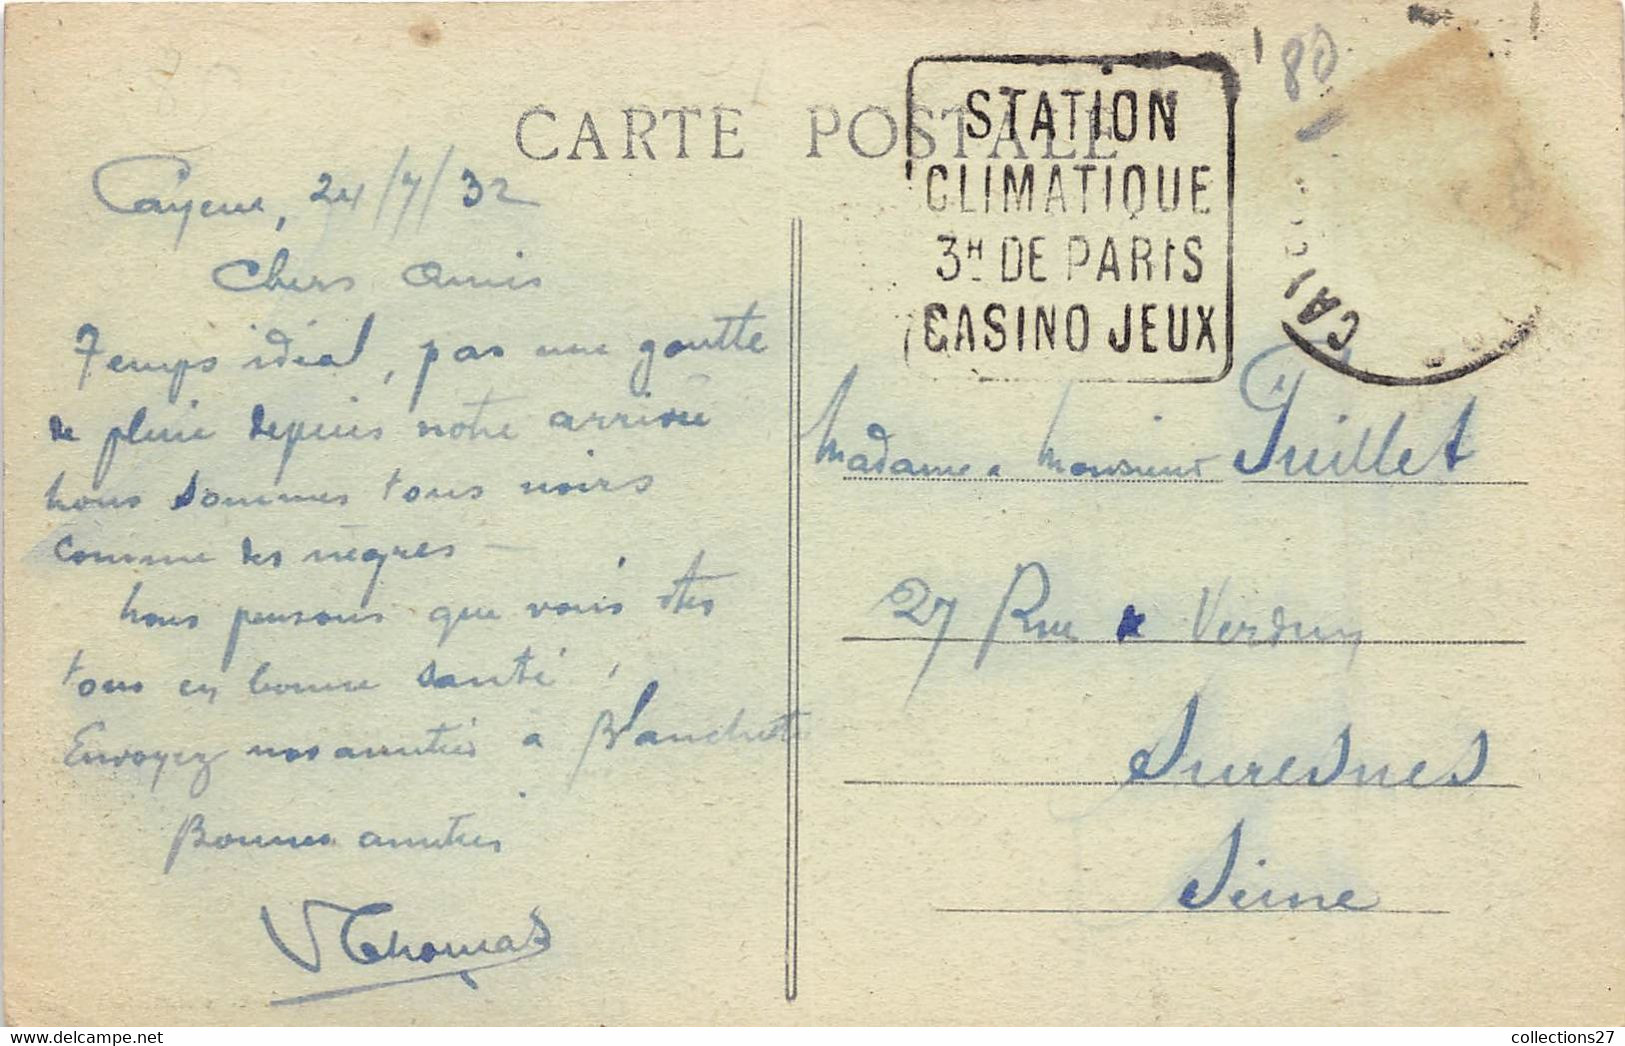 CARTE POSTALE
STATION
CLIMATIQUE
3H DE PARIS
CASINO JEUX
80
CAY
Cayeux, 24/7/32
Chers Amis
Temps idéal, pas une goutte
de pluie depuis notre arrivée
nous sommes tous noirs
comme des nègres —
nous pensons que vous êtes
tous en bonne santé,
Envoyez nos amitiés à Blanchet
Bonnes amitiés
Thomas
Madame & Monsieur Guillet
27 Rue de Verdun
Suresnes
Seine
delcampe.net
collections27